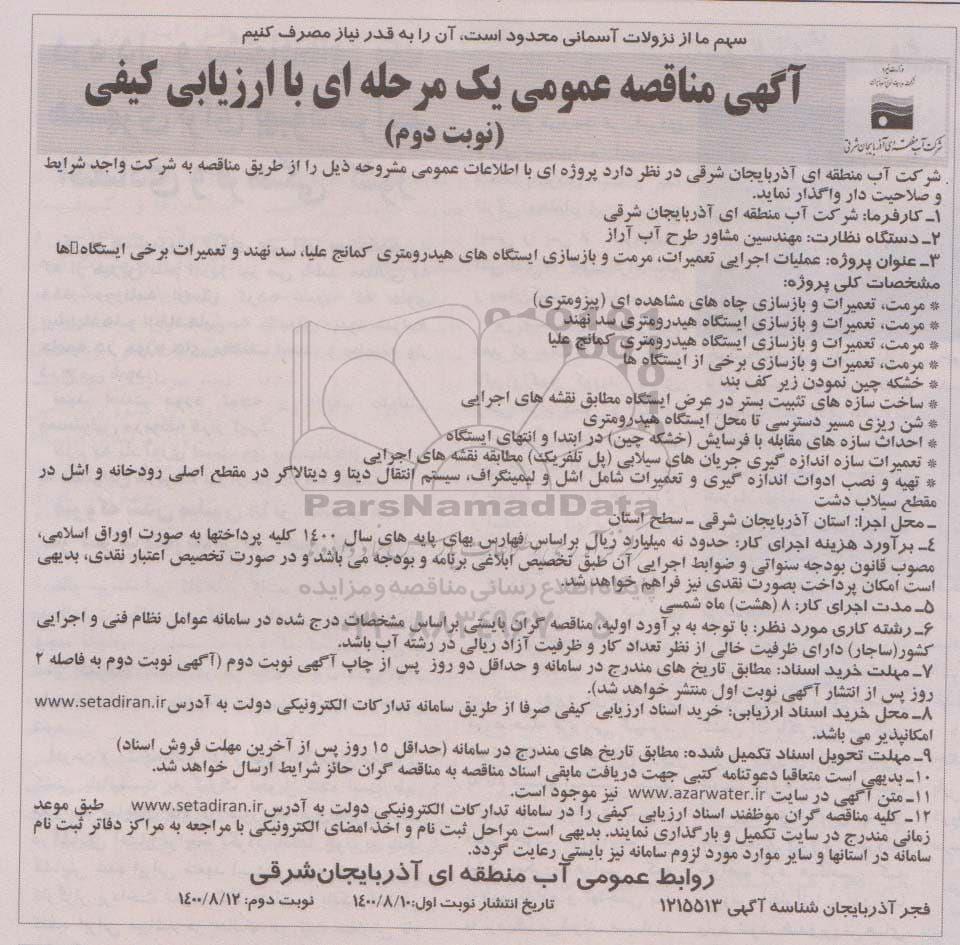 سهم ما از نزولات آسمانی محدود است، آن را به قدر نیاز مصرف کنیم
آگهی مناقصه عمومی یک مرحله ای با ارزیابی کیفی
(نوبت دوم)
شرکت آب منطقه ای آذربایجان شرقی
شرکت آب منطقه ای آذربایجان شرقی در نظر دارد پروژه ای با اطلاعات عمومی مشروحه ذیل را از طریق مناقصه به شرکت واجد شرایط
و صلاحیت دار واگذار نماید.
۱ـ کارفرما: شرکت آب منطقه ای آذربایجان شرقی
۲ـ دستگاه نظارت: مهندسین مشاور طرح آب آراز
۳ـ عنوان پروژه: عملیات اجرایی تعمیرات، مرمت و بازسازی ایستگاه های هیدرومتری کمانج علیا، سد نهند و تعمیرات برخی ایستگاه□ها
مشخصات کلی پروژه:
* مرمت، تعمیرات و بازسازی چاه های مشاهده ای (پیزومتری)
* مرمت، تعمیرات و بازسازی ایستگاه هیدرومتری سد نهند
* مرمت، تعمیرات و بازسازی ایستگاه هیدرومتری کمانج علیا
* مرمت، تعمیرات و بازسازی برخی از ایستگاه ها
* خشکه چین نمودن زیر کف بند
* ساخت سازه های تثبیت بستر در عرض ایستگاه مطابق نقشه های اجرایی
* شن ریزی مسیر دسترسی تا محل ایستگاه هیدرومتری
* احداث سازه های مقابله با فرسایش (خشکه چین) در ابتدا و انتهای ایستگاه
* تعمیرات سازه اندازه گیری جریان های سیلابی (پل تلفریک) مطابقه نقشه های اجرایی
* تهیه و نصب ادوات اندازه گیری و تعمیرات شامل اشل و لیمینگراف، سیستم انتقال دیتا و دیتالاگر در مقطع اصلی رودخانه و اشل در
مقطع سیلاب دشت
ـ محل اجرا: استان آذربایجان شرقی ـ سطح استان
٤ـ برآورد هزینه اجرای کار: حدود نه میلیارد ریال براساس فهارس بهای پایه های سال ۱۴۰۰ کلیه پرداختها به صورت اوراق اسلامی،
مصوب قانون بودجه سنواتی و ضوابط اجرایی آن طبق تخصیص ابلاغی برنامه و بودجه می باشد و در صورت تخصیص اعتبار نقدی، بدیهی
است امکان پرداخت بصورت نقدی نیز فراهم خواهد شد.
۵ـ مدت اجرای کار: ۸ (هشت) ماه شمسی
۶ـ رشته کاری مورد نظر: با توجه به برآورد اولیه، مناقصه گران بایستی براساس مشخصات درج شده در سامانه عوامل نظام فنی و اجرایی
کشور(ساجار) دارای ظرفیت خالی از نظر تعداد کار و ظرفیت آزاد ریالی در رشته آب باشد.
۷ـ مهلت خرید اسناد: مطابق تاریخ های مندرج در سامانه و حداقل دو روز پس از چاپ آگهی نوبت دوم (آگهی نوبت دوم به فاصله ۲
روز پس از انتشار آگهی نوبت اول منتشر خواهد شد).
۸ـ محل خرید اسناد ارزیابی: خرید اسناد ارزیابی کیفی صرفا از طریق سامانه تدارکات الکترونیکی دولت به آدرس www.setadiran.ir
امکانپذیر می باشد.
۹ـ مهلت تحویل اسناد تکمیل شده: مطابق تاریخ های مندرج در سامانه (حداقل ۱۵ روز پس از آخرین مهلت فروش اسناد)
۱۰ـ بدیهی است متعاقبا دعوتنامه کتبی جهت دریافت مابقی اسناد مناقصه به مناقصه گران حائز شرایط ارسال خواهد شد.
۱۱ـ متن آگهی در سایت www.azarwater.ir نیز موجود است.
۱۲ـ کلیه مناقصه گران موظفند اسناد ارزیابی کیفی را در سامانه تدارکات الکترونیکی دولت به آدرس www.setadiran.ir طبق موعد
زمانی مندرج در سایت تکمیل و بارگذاری نمایند. بدیهی است مراحل ثبت نام و اخذ امضای الکترونیکی با مراجعه به مراکز دفاتر ثبت نام
سامانه در استانها و سایر موارد مورد لزوم سامانه نیز بایستی رعایت گردد.
روابط عمومی آب منطقه ای آذربایجان شرقی
فجر آذربایجان شناسه آگهی ۱۲۱۵۵۱۳ تاریخ انتشار نوبت اول: ۱۴۰۰/۸/۱۰ نوبت دوم: ۱۴۰۰/۸/۱۲
ParsNamadData
پایگاه اطلاع رسانی مناقصه و مزایده